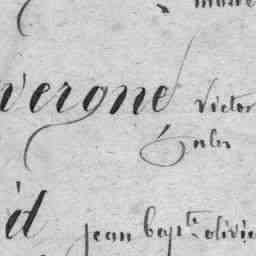 vergne Victor
Gules
id jean bapt. olivie